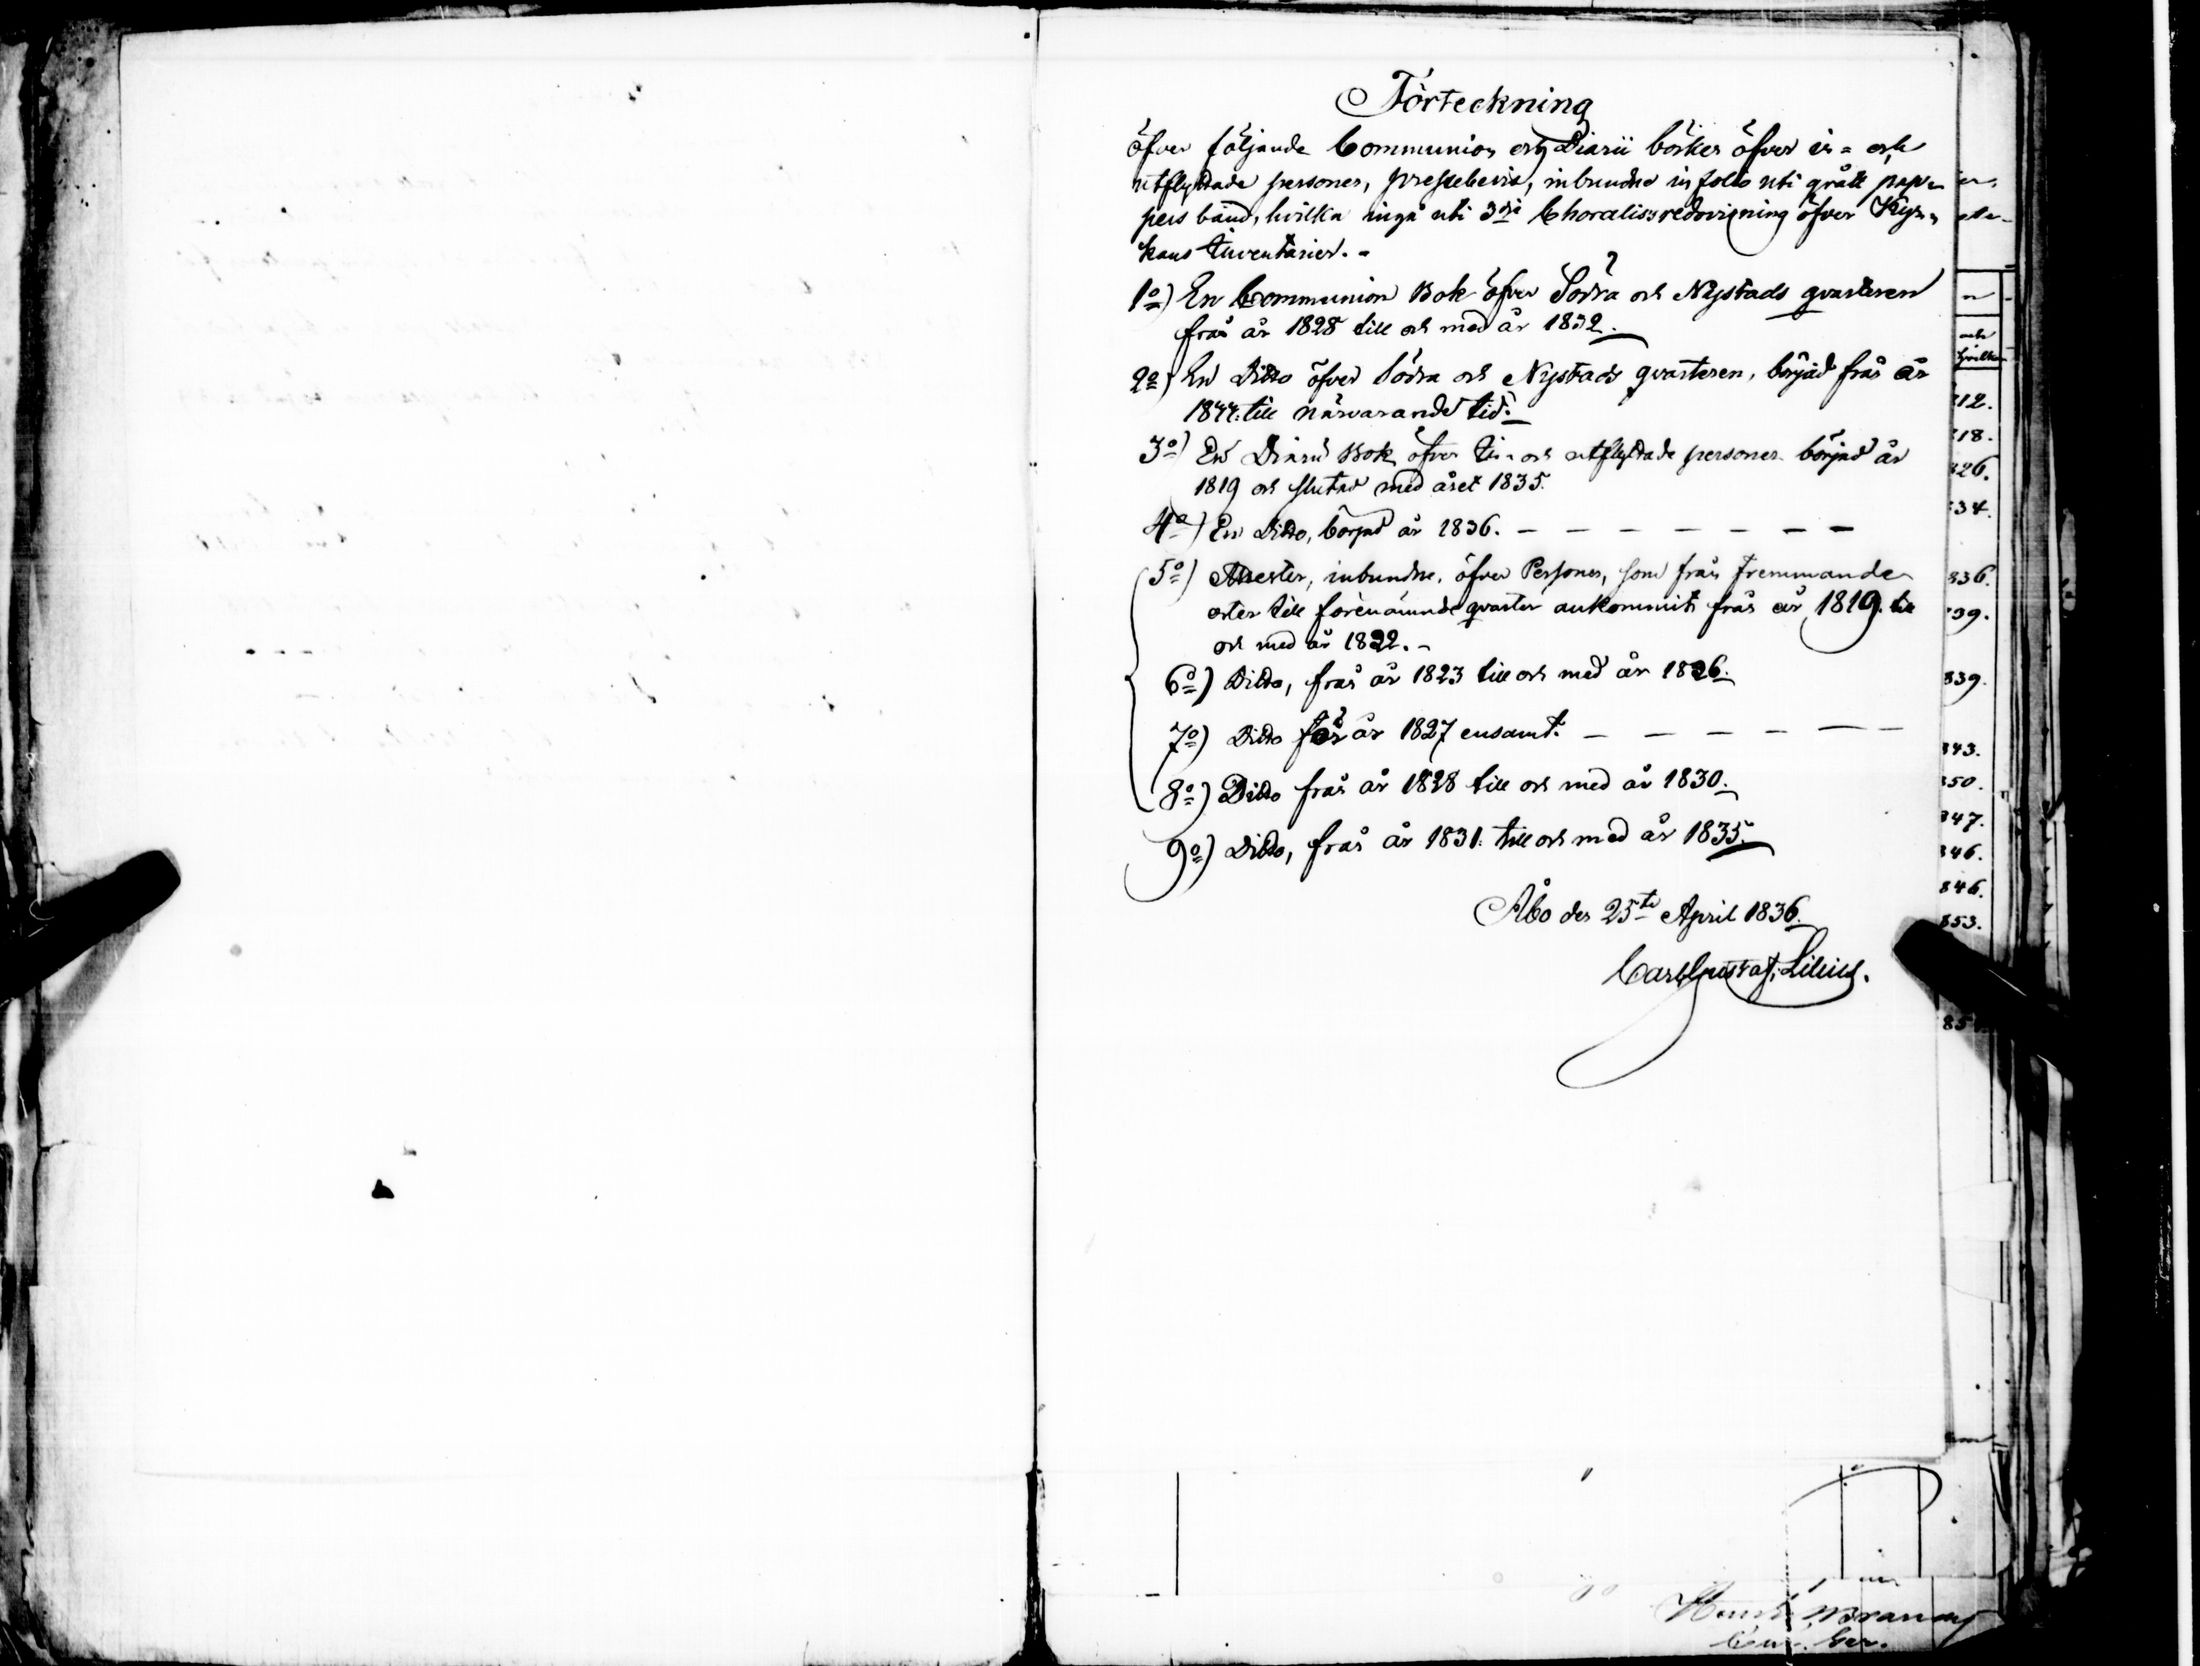 Förteckning
öfver följande Communion och Diarii böcker öfver in= och
utflyttade personer, inbundne in folio uti grått pap=
pers band, hvilka ingå uti 3dje redovisning öfver Kyr=
kans Inventarier.-
1o) En Communion Bok öfver Södra och Nystads qvarteren
från år 1828 till och med år 1832.
2o) En Ditto öfver Södra och Nystads qvarteren, börjad från år
till närvarande tid.
3o) En Diarii Bok öfver in- och utflyttade personer börjad år
1819 och slutad med året 1835.
4o) En Ditto, börjad år 1836. – – – – – – – –
5o) Attester, inbundne, öfver Personer, som från fremmande
orter till förenämnde qvarter ankommit från år 1819. till
och med år 1822.-
6o) Ditto, från år 1823 till och med år 1826.
7o) Ditto för år 1827 ensamt. – – – – – –
8o) Ditto från år 1828 till och med år 1830.
9o) Ditto, från år 1831. till och med år 1835.
Åbo den 25te April 1836.
Carl Gustaf Lilius.
12.
18.
26.
34.
836.
39.
839.
843.
850.
847.
846.
846.
853.